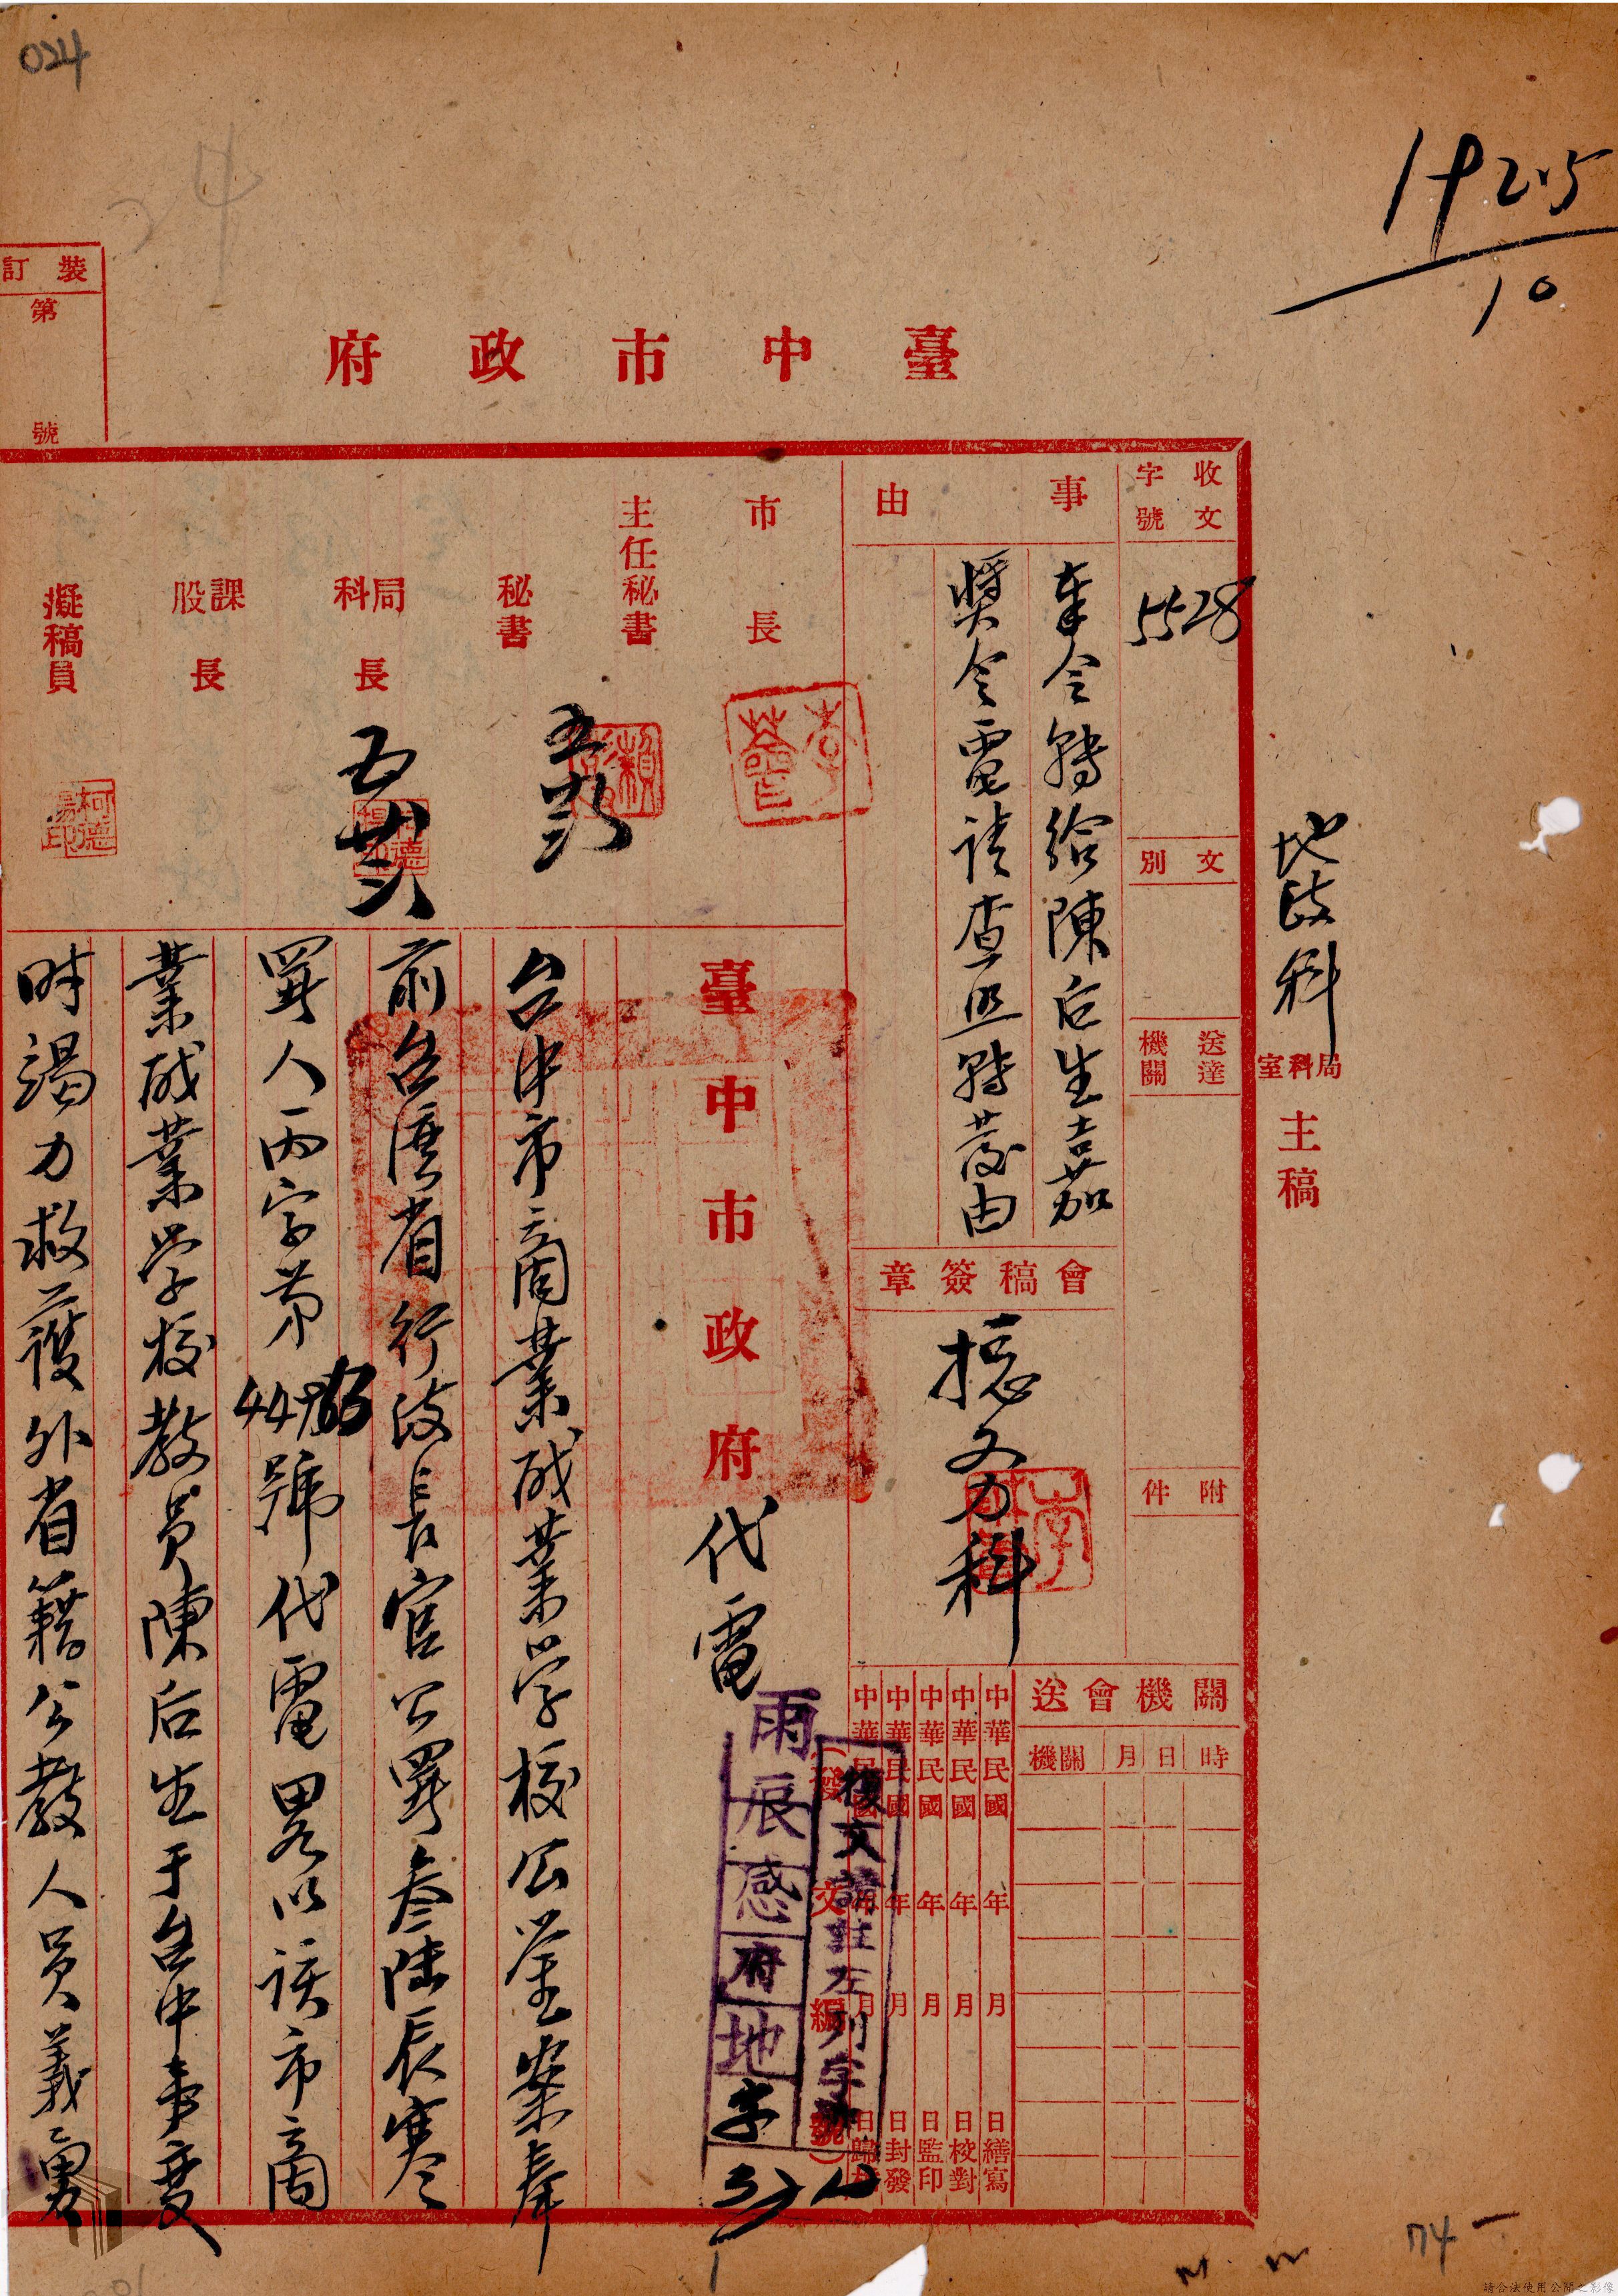 024
24
1925
10
裝訂
第 號
臺中市政府
地政科
局科室 主稿
收文 字號
5528
文別
送達機關
附件
事由
奉令轉給陳后生嘉
獎令電請查照轉發由
會稿簽章
總務科
關機會送
時 日 月 關機
中華民國 年 月 日繕寫
中華民國 年 月 日校對
中華民國 年 月 日監印
中華民國 年 月 日封發
中華民國 年 月 日歸
復文請註左列字號
辰感府地字
市長
主任秘書
秘書
局科長
課股長
擬稿員
柯德
臺中市政府代電
台中市商業成業学校公鑒案奉
前台湾省行政長官公署叁陆辰寒
署人丙字第 號代電畧以該市商
業成業学校教員陳后生于台中事变
時竭力救護外省籍公教人員義勇
74
請合法使用公開之影像